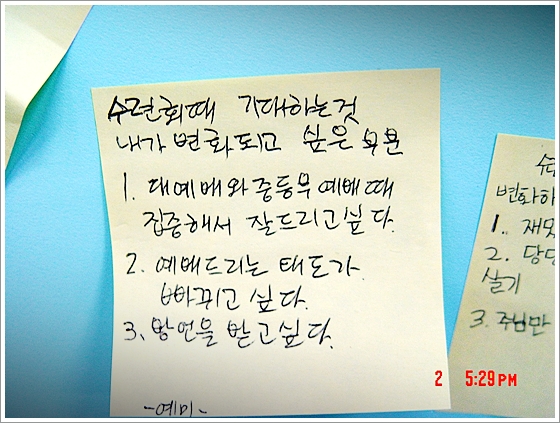 수련회때 기대하는것
내가 변화되고 싶은 부분
1. 대예배와 중등부 예배때
집중해서 잘드리고싶다.
2. 예배드리는 태도가
바뀌고 싶다.
3. 방언을 받고싶다.
-예미-
변화하
1. 재밌
2. 당당
살기
3. 주님만
2 5:29 PM